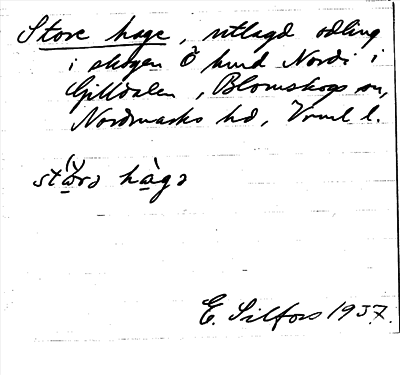 Store hage, utlagd odling
i skogen Ö hmd Nordi i
Gilldalen, Blomskogs sn,
Nordmarks hd, Vrml l.
stɷrə hàgə
E. Silfors 1937.